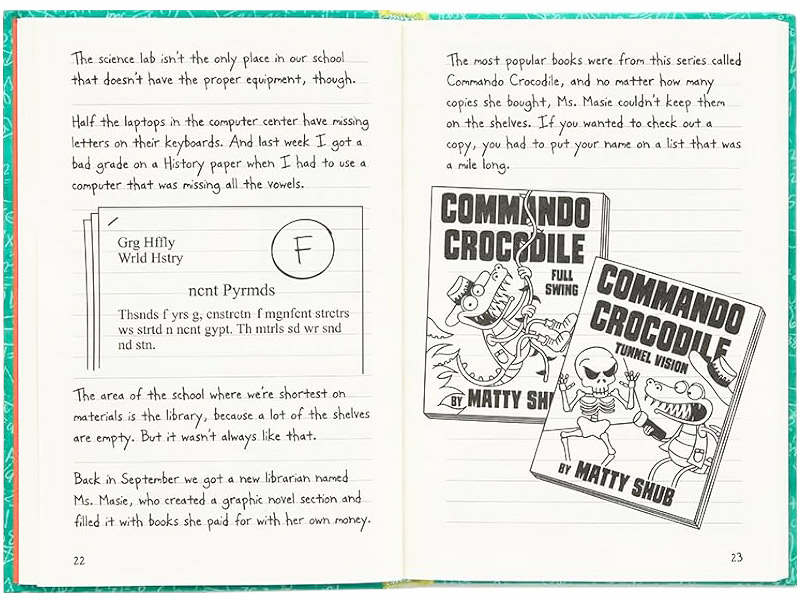 The science lab isn't the only place in our school
that doesn't have the proper equipment, though.
Half the laptops in the computer center have missing
letters on their keyboards. And last week I got a
bad grade on a History paper when I had to use a
computer that was missing all the vowels.
Grg Hffly
Wrld Hstry
F
ncnt Pyrmds
Thsnds f yrs g, cnstrctn f mgnfcnt strctrs
ws strtd n ncnt gypt. Th mtrls sd wr snd
nd stn.
The area of the school where we're shortest on
materials is the library, because a lot of the shelves
are empty. But it wasn't always like that.
Back in September we got a new librarian named
Ms. Masie, who created a graphic novel section and
filled it with books she paid for with her own money.
22
The most popular books were from this series called
Commando Crocodile, and no matter how many
copies she bought, Ms. Masie couldn't keep them
on the shelves. If you wanted to check out a
copy, you had to put your name on a list that was
a mile long.
COMMANDO
CROCODILE
FULL
SWING
BY MATTY SH
COMMANDO
CROCODILE
TUNNEL VISION
BY MATTY SHUB
23